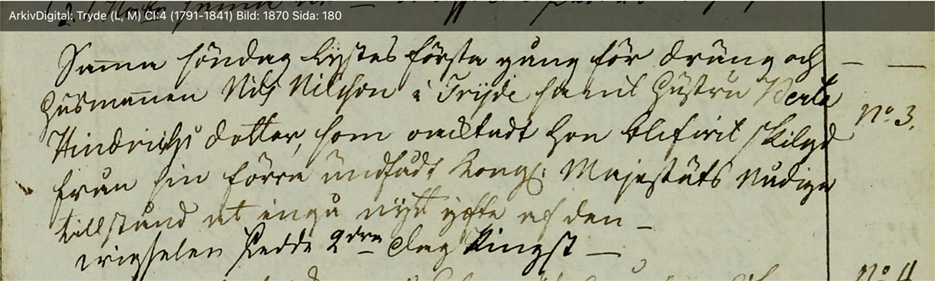 ArkivDigital: Tryde (L, M) CI:4 (1791-1841) Bild: 1870 Sida: 180
Samma söndag lystes första gång för Dräng och
Husmannen Nils Nilsson i Tryde samt Hustru Berta
Hindrichs dotter, som omitadt hon blifvit skilgd
från sin förra undfådt Kongl: Majestäts nådiga
tillstånd at ingå nytt gifte af den
wigselen skedde 2dra dag Pingst
No. 3.
No. 4